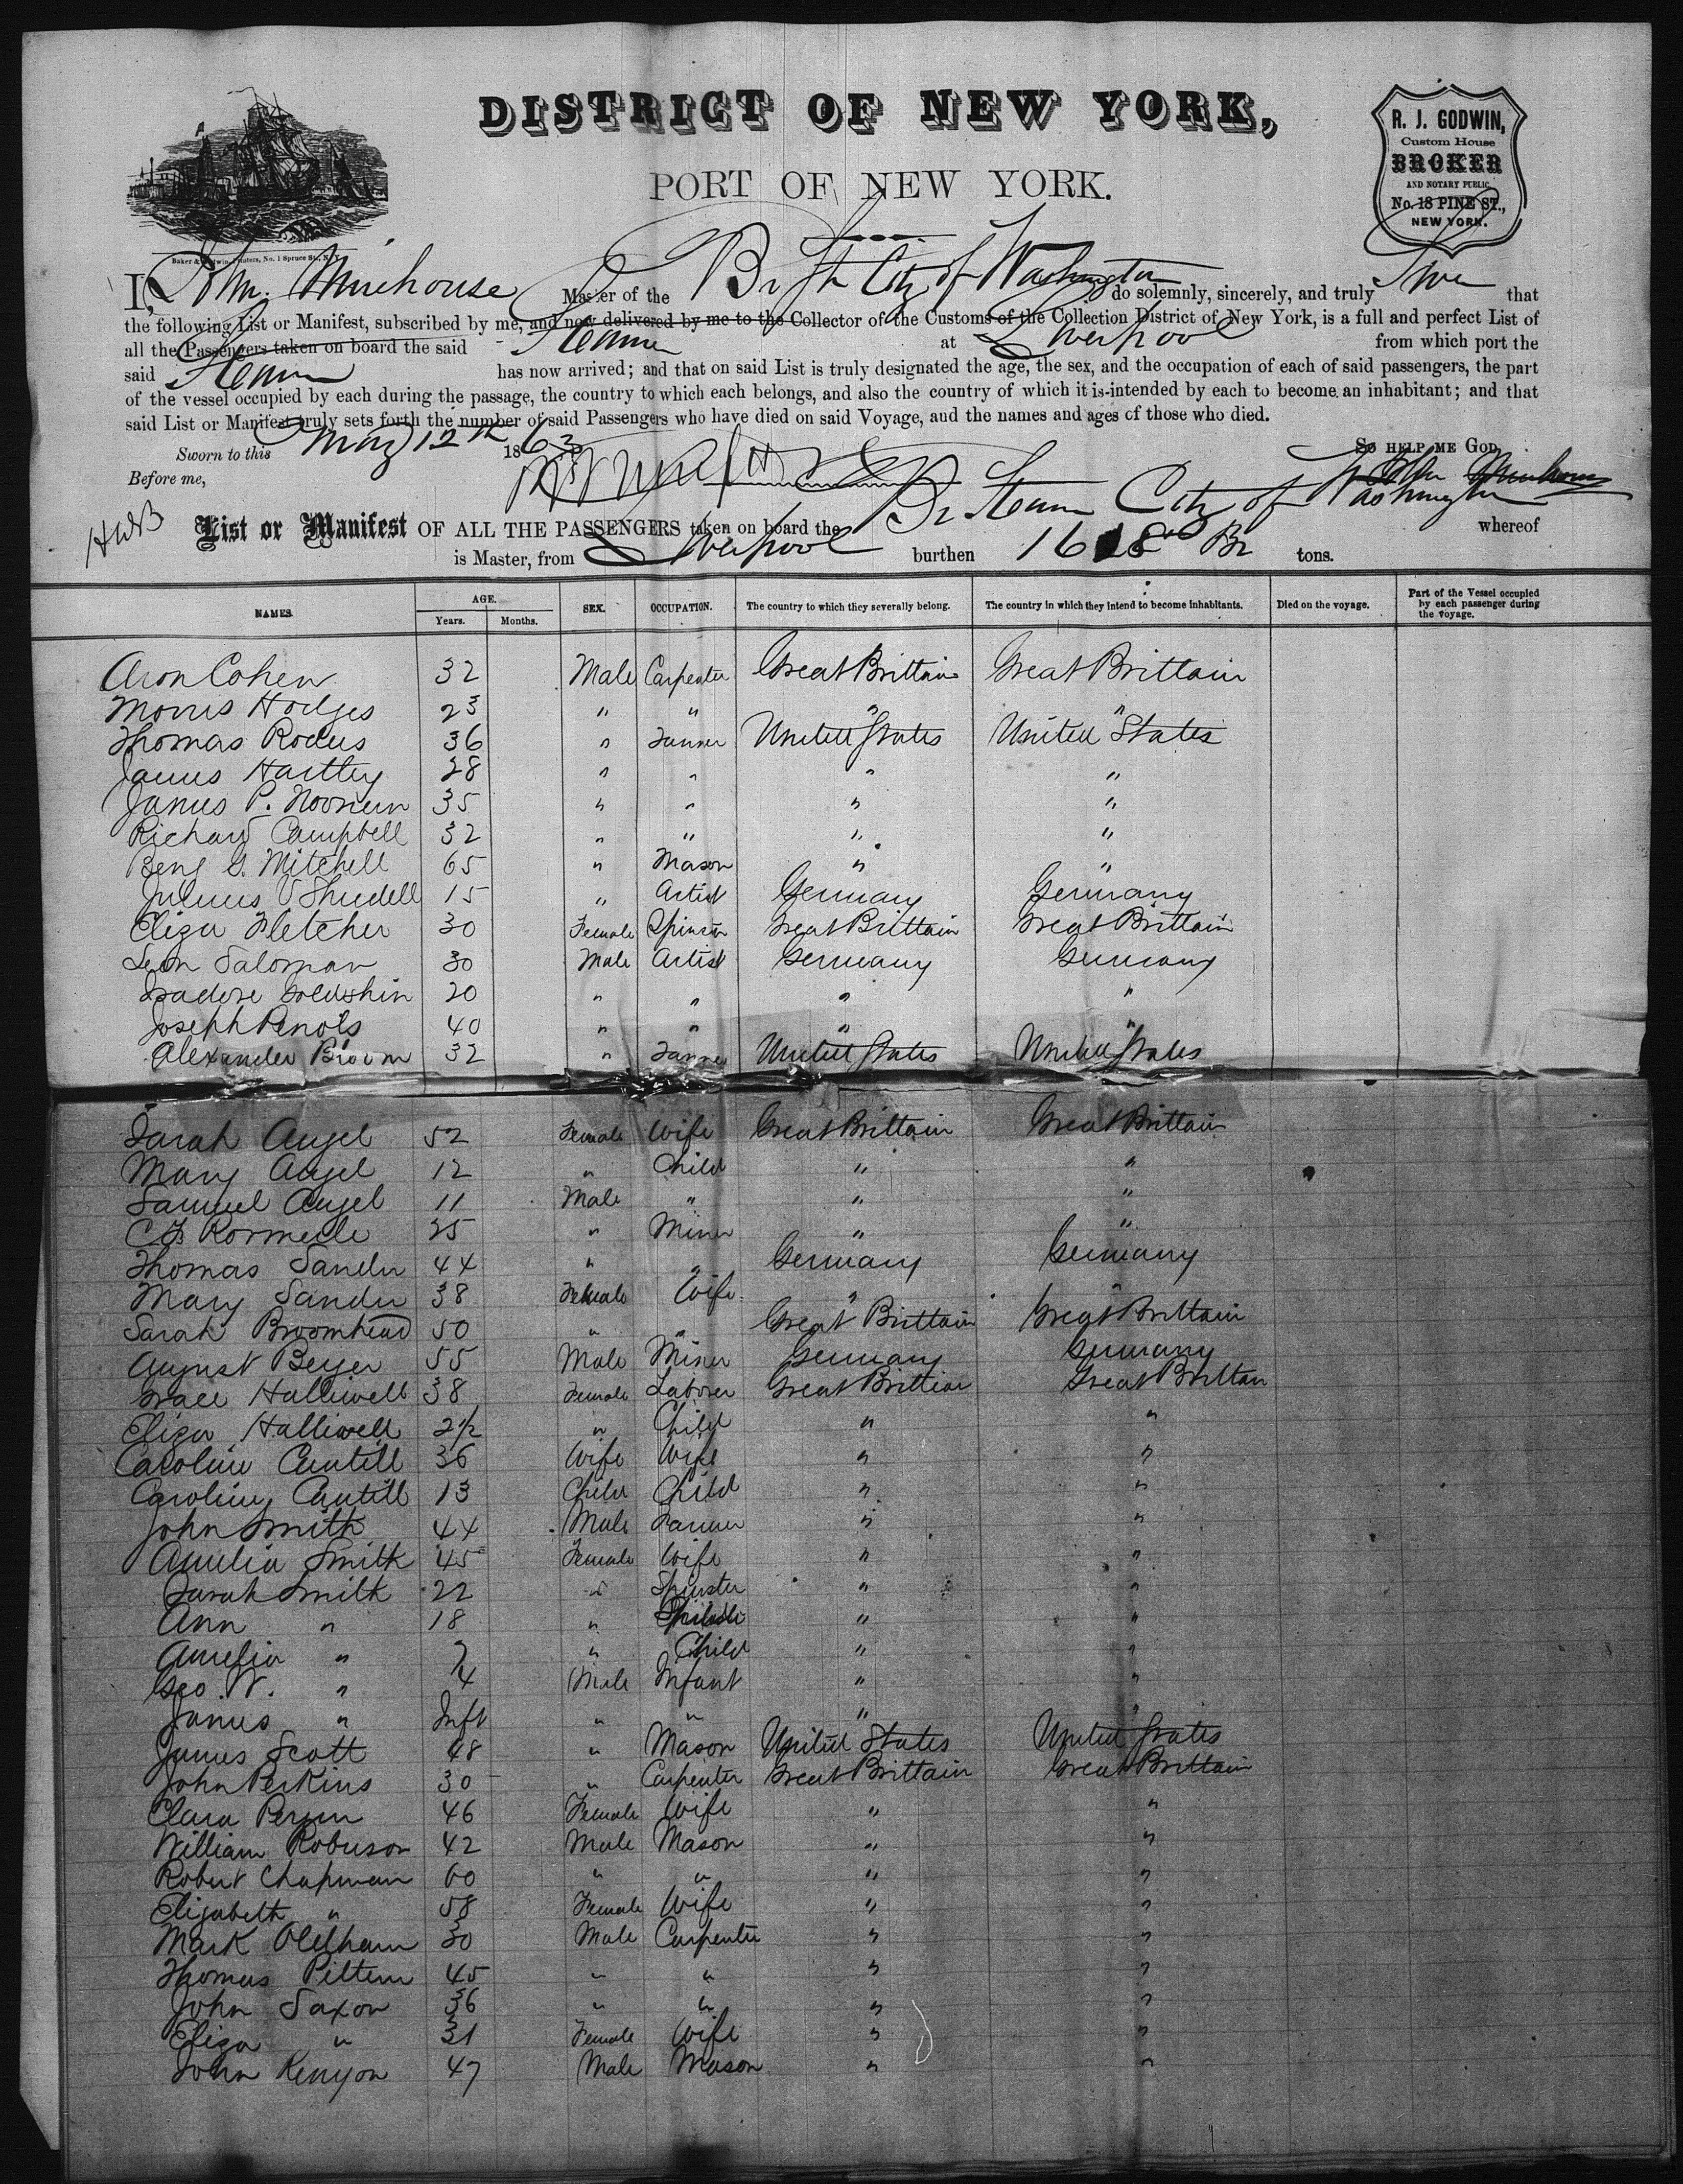 DISTRICT OF NEW YORK,
PORT OF NEW YORK.
R. J. GODWIN,
Custom House
BROKER
AND NOTARY PUBLIC,
No. 18 PINE ST.,
NEW YORK.
Baker & Godwin, Printers, No. 1 Spruce St., N. Y.
I, John Mirehouse Master of the Br Str City of Washington do solemnly, sincerely, and truly Swear that
the following List or Manifest, subscribed by me, and now delivered by me to the Collector of the Customs of the Collection District of New York, is a full and perfect List of
all the Passengers taken on board the said Steamer at Liverpool from which port the
said Steamer has now arrived; and that on said List is truly designated the age, the sex, and the occupation of each of said passengers, the part
of the vessel occupied by each during the passage, the country to which each belongs, and also the country of which it is intended by each to become an inhabitant; and that
said List or Manifest truly sets forth the number of said Passengers who have died on said Voyage, and the names and ages of those who died.
Sworn to this May 12th 1863 SO HELP ME GOD,
Before me, John Mirehouse
HWB
List or Manifest OF ALL THE PASSENGERS taken on board the Br Steam City of Washington whereof
is Master, from Liverpool burthen Br tons.
NAMES. AGE. SEX. OCCUPATION. The country to which they severally belong. The country in which they intend to become inhabitants. Died on the voyage. Part of the Vessel occupied by each passenger during the voyage.
Years. Months.
Aron Cohen 32 Male Carpenter Great Brittain Great Brittain
Morris Hodges 23 " " " "
Thomas 36 " United States United States
James Hartley 28 " " " "
James P. Noonen 35 " " " "
Richard Campbell 32 " " " "
Benj G. Mitchell 65 " Mason " "
15 " Artist Germany Germany
Eliza Fletcher 30 Female Spinster Great Brittain Great Brittain
Leon Saloman 30 Male Artist Germany Germany
Isadore 20 " " " "
Joseph 40 " " " "
Alexander Broom 32 " United States United States
Sarah Angel 52 Female Wife Great Brittain Great Brittain
Mary Angel 12 " Child " "
Samuel Angel 11 Male " " "
25 " Miner " "
Thomas Sander 44 " " Germany Germany
Mary Sander 38 Female Wife " "
Sarah Broomhead 50 " " Great Brittain Great Brittain
August Beyer 55 Male Miner Germany Germany
Grace Halliwell 38 Female Laborer Great Brittian Great Brittan
Eliza Halliwell 2½ " Child " "
Caroline Cantill 36 Wife Wife " "
Caroline Cantill 13 Child Child " "
John Smith 44 Male Farmer " "
Amelia Smith 45 Female Wife " "
Sarah Smith 22 " Spinster " "
Ann " 18 " " "
Amelia " 7 " Child " "
Geo. W. " 4 Male Infant " "
James " Inft " " " "
James Scott 48 " Mason United States United States
John Perkins 30 " Carpenter Great Brittain Great Brittain
Clara 46 Female Wife " "
William Robinson 42 Male Mason " "
Robert Chapman 60 " " " "
Elizabeth " 58 Female Wife " "
Mark Oldham 30 Male Carpenter " "
Thomas 45 " " " "
John Saxon 36 " " " "
Eliza " 31 Female Wife " "
John Kenyon 47 Male Mason " "